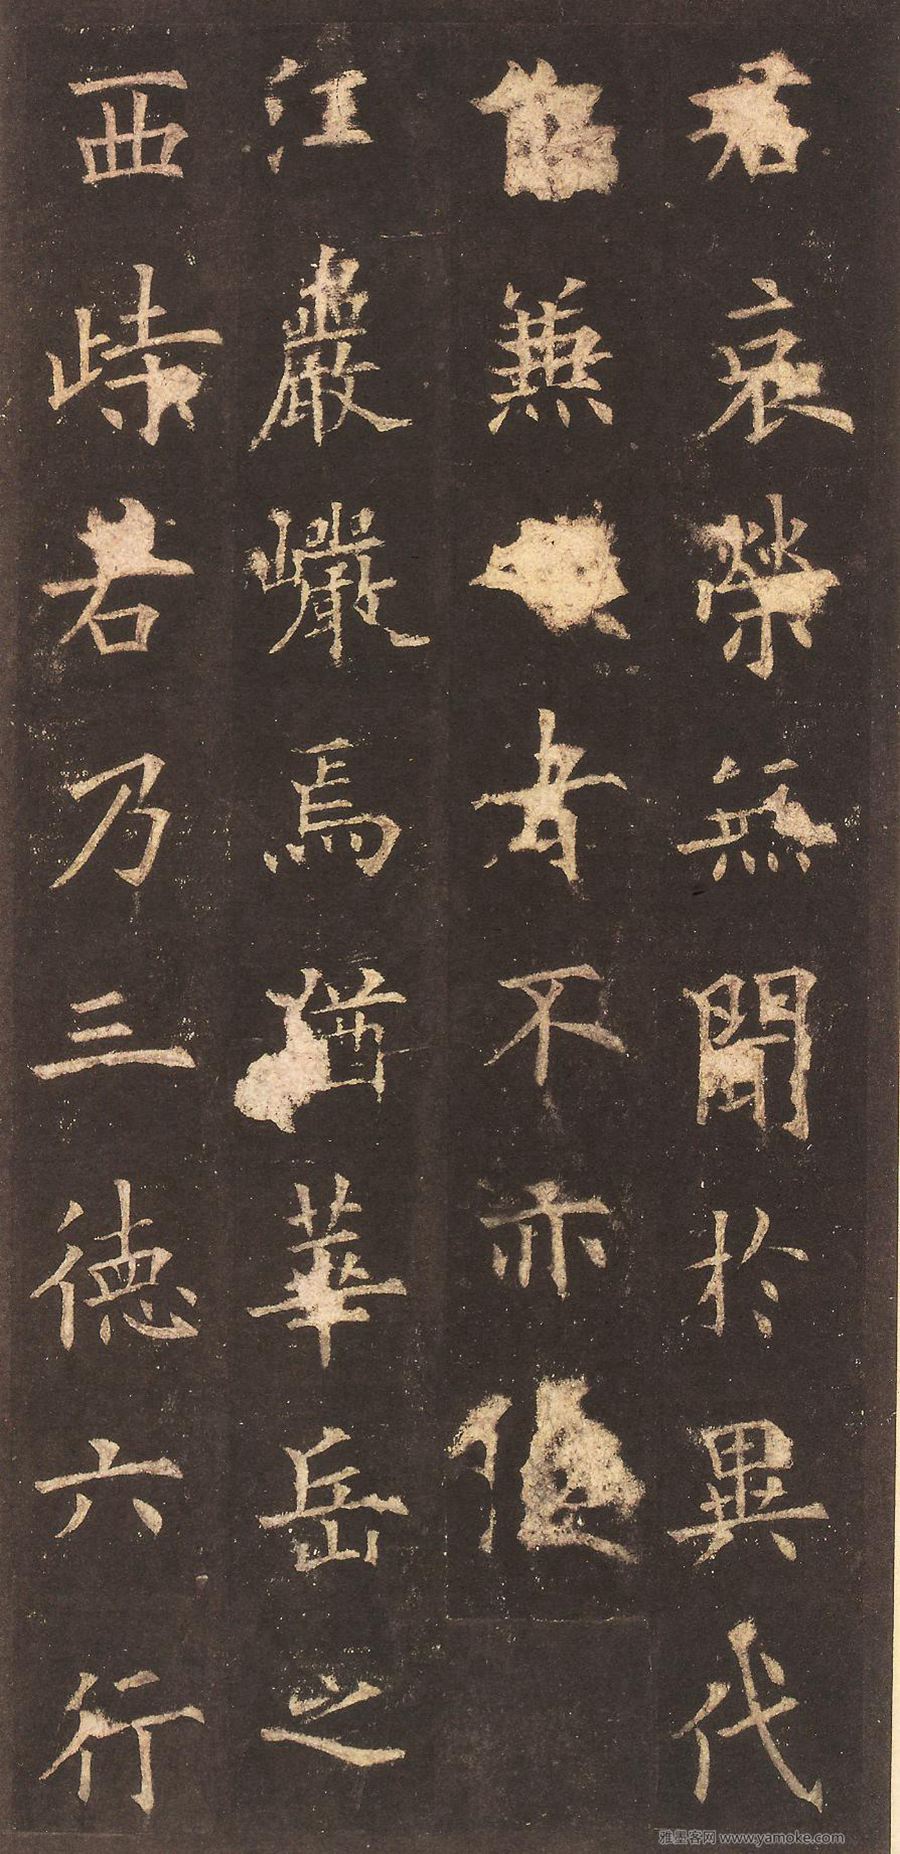 哀榮無聞於異代
兼者不亦
江巖巗焉猶華岳之
西峙若乃三德六行
雅墨客网 www.yamoke.com